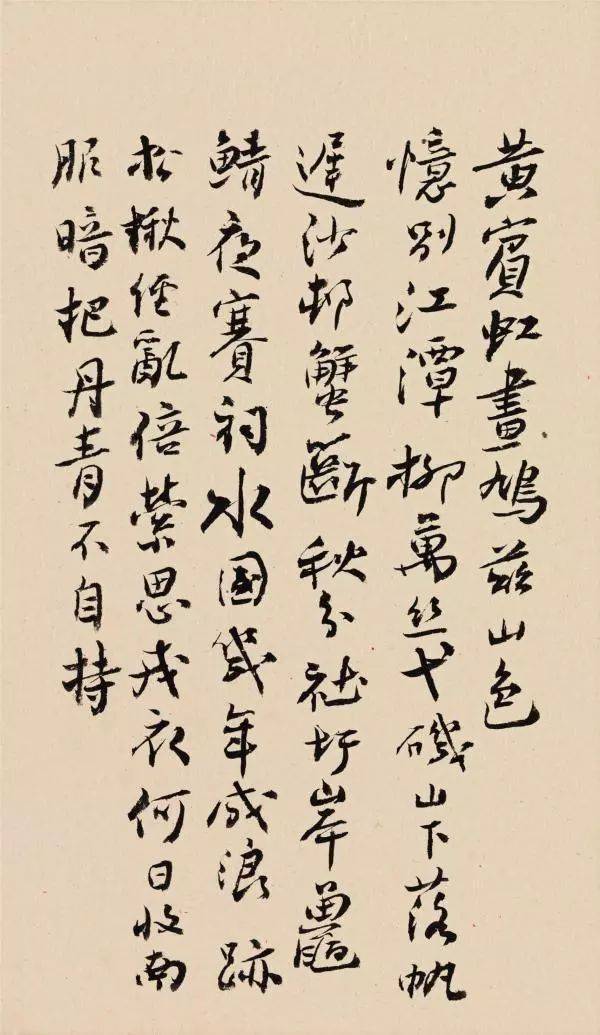 黃賓虹畫鳩茲山色
憶別江潭柳萬絲弋磯山下落帆
遲沙邨蟹斷秋分社圩岸鼉
鯖夜賽祠水國幾年成浪跡
松楸經亂倍縈思戎衣何日收南
服暗把丹青不自持